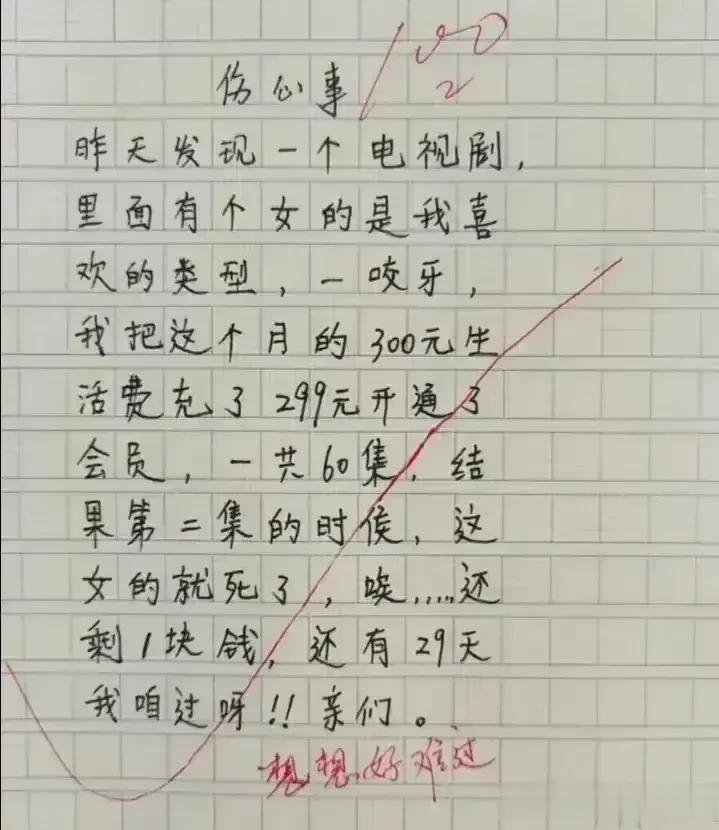 伤心事
100
2
昨天发现一个电视剧，
里面有个女的是我喜
欢的类型，一咬牙，
我把这个月的300元生
活费充了299元开通了
会员，一共60集，结
果第二集的时侯，这
女的就死了，唉.....还
剩1块钱，还有29天
我咱过呀!!亲们。
想想好难过